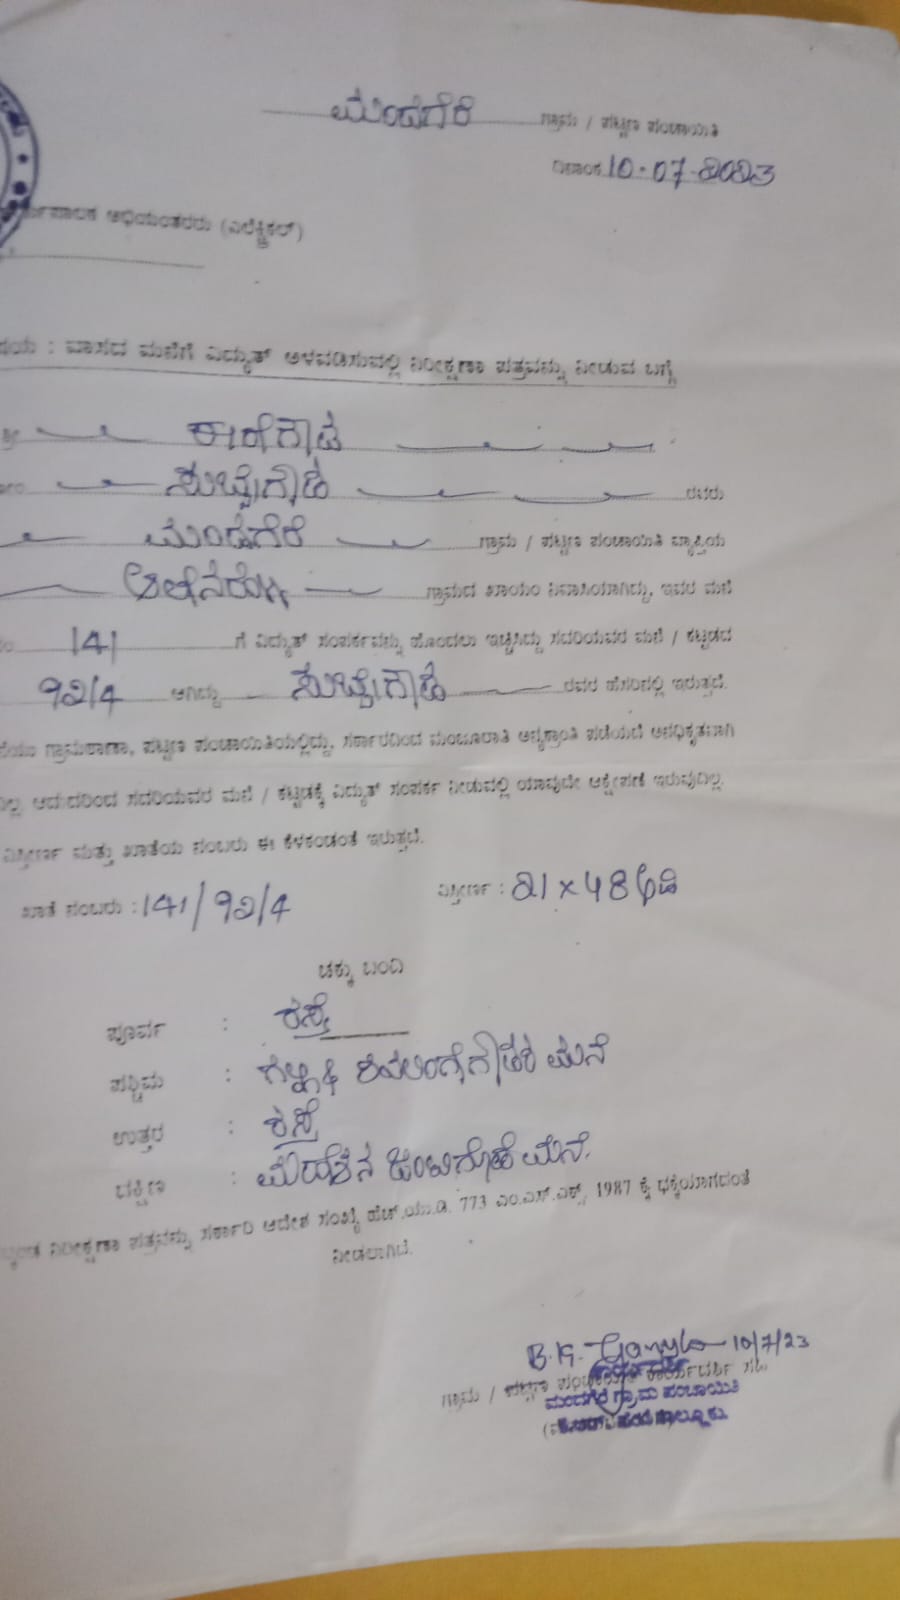 ಮಂದಗೆರೆ ಗ್ರಾಮ / ಪಟ್ಟಣ ಪಂಚಾಯಿತಿ
ದಿನಾಂಕ 10-07-2023
ಅಭಿಯಂತರರು (ಎಲೆಕ್ಟ್ರಿಕಲ್)
: ವಾಸದ ಮನೆಗೆ ವಿದ್ಯುತ್ ಅಳವಡಿಸುವಲ್ಲಿ ನಿರೀಕ್ಷಣಾ ಪತ್ರವನ್ನು ನೀಡುವ ಬಗ್ಗೆ
ಶ್ರೀ ಕಾಳೇಗೌಡ
ಸುಬ್ಬೇಗೌಡ ರವರು
ಮಂದಗೆರೆ ಗ್ರಾಮ / ಪಟ್ಟಣ ಪಂಚಾಯಿತಿ ವ್ಯಾಪ್ತಿಯ
ಗ್ರಾಮದ ಖಾಯಂ ನಿವಾಸಿಯಾಗಿದ್ದು, ಇವರ ಮನೆ
ನಂ. 141 ಗೆ ವಿದ್ಯುತ್ ಸಂಪರ್ಕವನ್ನು ಹೊಂದಲು ಇಚ್ಚಿಸಿದ್ದು ಸದರಿಯವರ ಮನೆ / ಕಟ್ಟಡದ
92/4 ಆಗಿದ್ದು ಸುಬ್ಬೇಗೌಡ ರವರ ಹೆಸರಿನಲ್ಲಿ ಇರುತ್ತದೆ.
ಗ್ರಾಮಠಾಣಾ, ಪಟ್ಟಣ ಪಂಚಾಯಿತಿಯಲ್ಲಿದ್ದು, ಸರ್ಕಾರದಿಂದ ಮಂಜೂರಾತಿ ಅನ್ಯಕ್ರಾಂತಿ ಪಡೆಯದೆ ಅನಧಿಕೃತವಾಗಿ
ಆದುದರಿಂದ ಸದರಿಯವರ ಮನೆ / ಕಟ್ಟಡಕ್ಕೆ ವಿದ್ಯುತ್ ಸಂಪರ್ಕ ನೀಡುವಲ್ಲಿ ಯಾವುದೇ ಆಕ್ಷೇಪಣೆ ಇರುವುದಿಲ್ಲ.
ವಿಸ್ತೀರ್ಣ ಮತ್ತು ಖಾತೆಯ ನಂಬರು ಈ ಕೆಳಕಂಡಂತೆ ಇರುತ್ತದೆ.
ಖಾತೆ ನಂಬರು : 141/92/4 ವಿಸ್ತೀರ್ಣ : 21 x 48 ಅಡಿ
ಚಕ್ಕು ಬಂದಿ
ಪೂರ್ವ : ರಸ್ತೆ
ಪಶ್ಚಿಮ : ಗಲ್ಲಿ & ಶಿವಲಿಂಗೇಗೌಡರ ಮನೆ
ಉತ್ತರ : ರಸ್ತೆ
ದಕ್ಷಿಣ : ಮನೆ.
ನಿರೀಕ್ಷಣಾ ಪತ್ರವನ್ನು ಸರ್ಕಾರಿ ಆದೇಶ ಸಂಖ್ಯೆ ಹೆಚ್.ಯು.ಡಿ. 773 ಎಂ.ಎನ್.ಎಕ್ಸ್, 1987 ಕ್ಕೆ ಧಕ್ಕೆಯಾಗದಂತೆ
ನೀಡಲಾಗಿದೆ.
10/7/23
ಗ್ರಾಮ / ಪಟ್ಟಣ ಪಂಚಾಯಿತಿ ಕಾರ್ಯದರ್ಶಿ ಸಹಿ
ಮಂದಗೆರೆ ಗ್ರಾಮ ಪಂಚಾಯಿತಿ
ತಾಲ್ಲೂಕು.